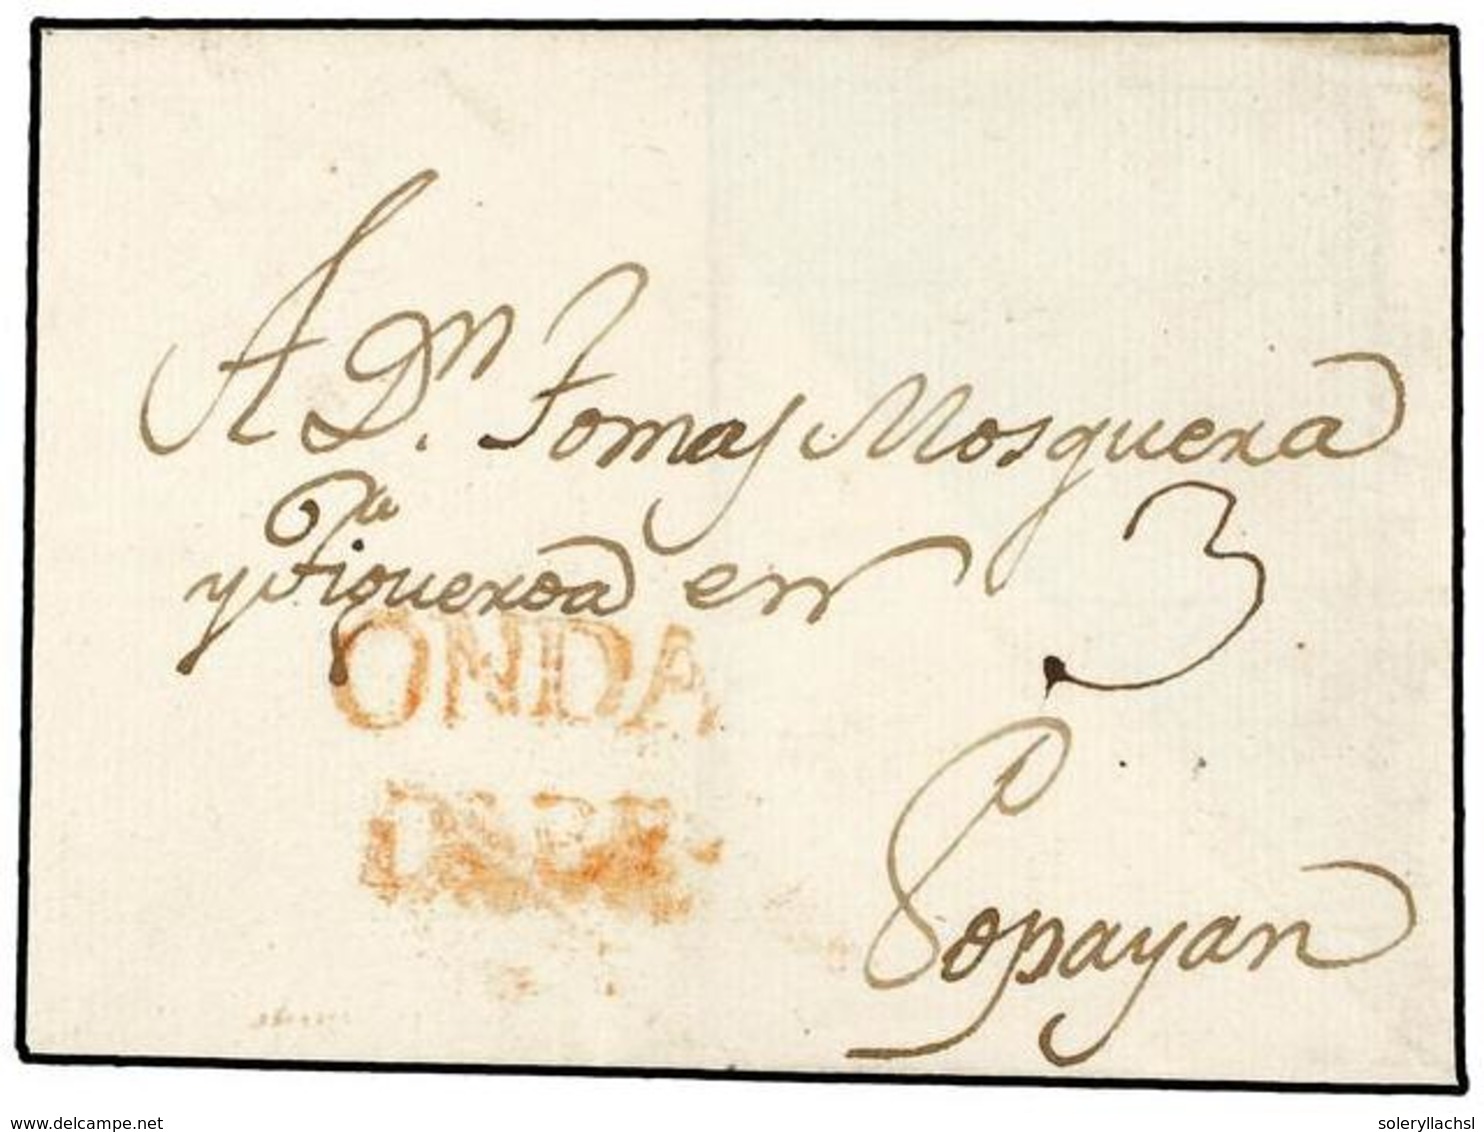 A Dn. Tomas Mosquera
y Figueroa en
3
ONDA
Popayan
www.delcampe.net
soleryllachsl